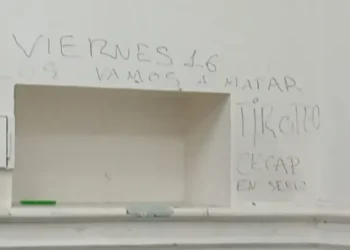 VIERNES 16
OS VAMOS A MATAR
TiRoTEO
CECAP
EN SERIO